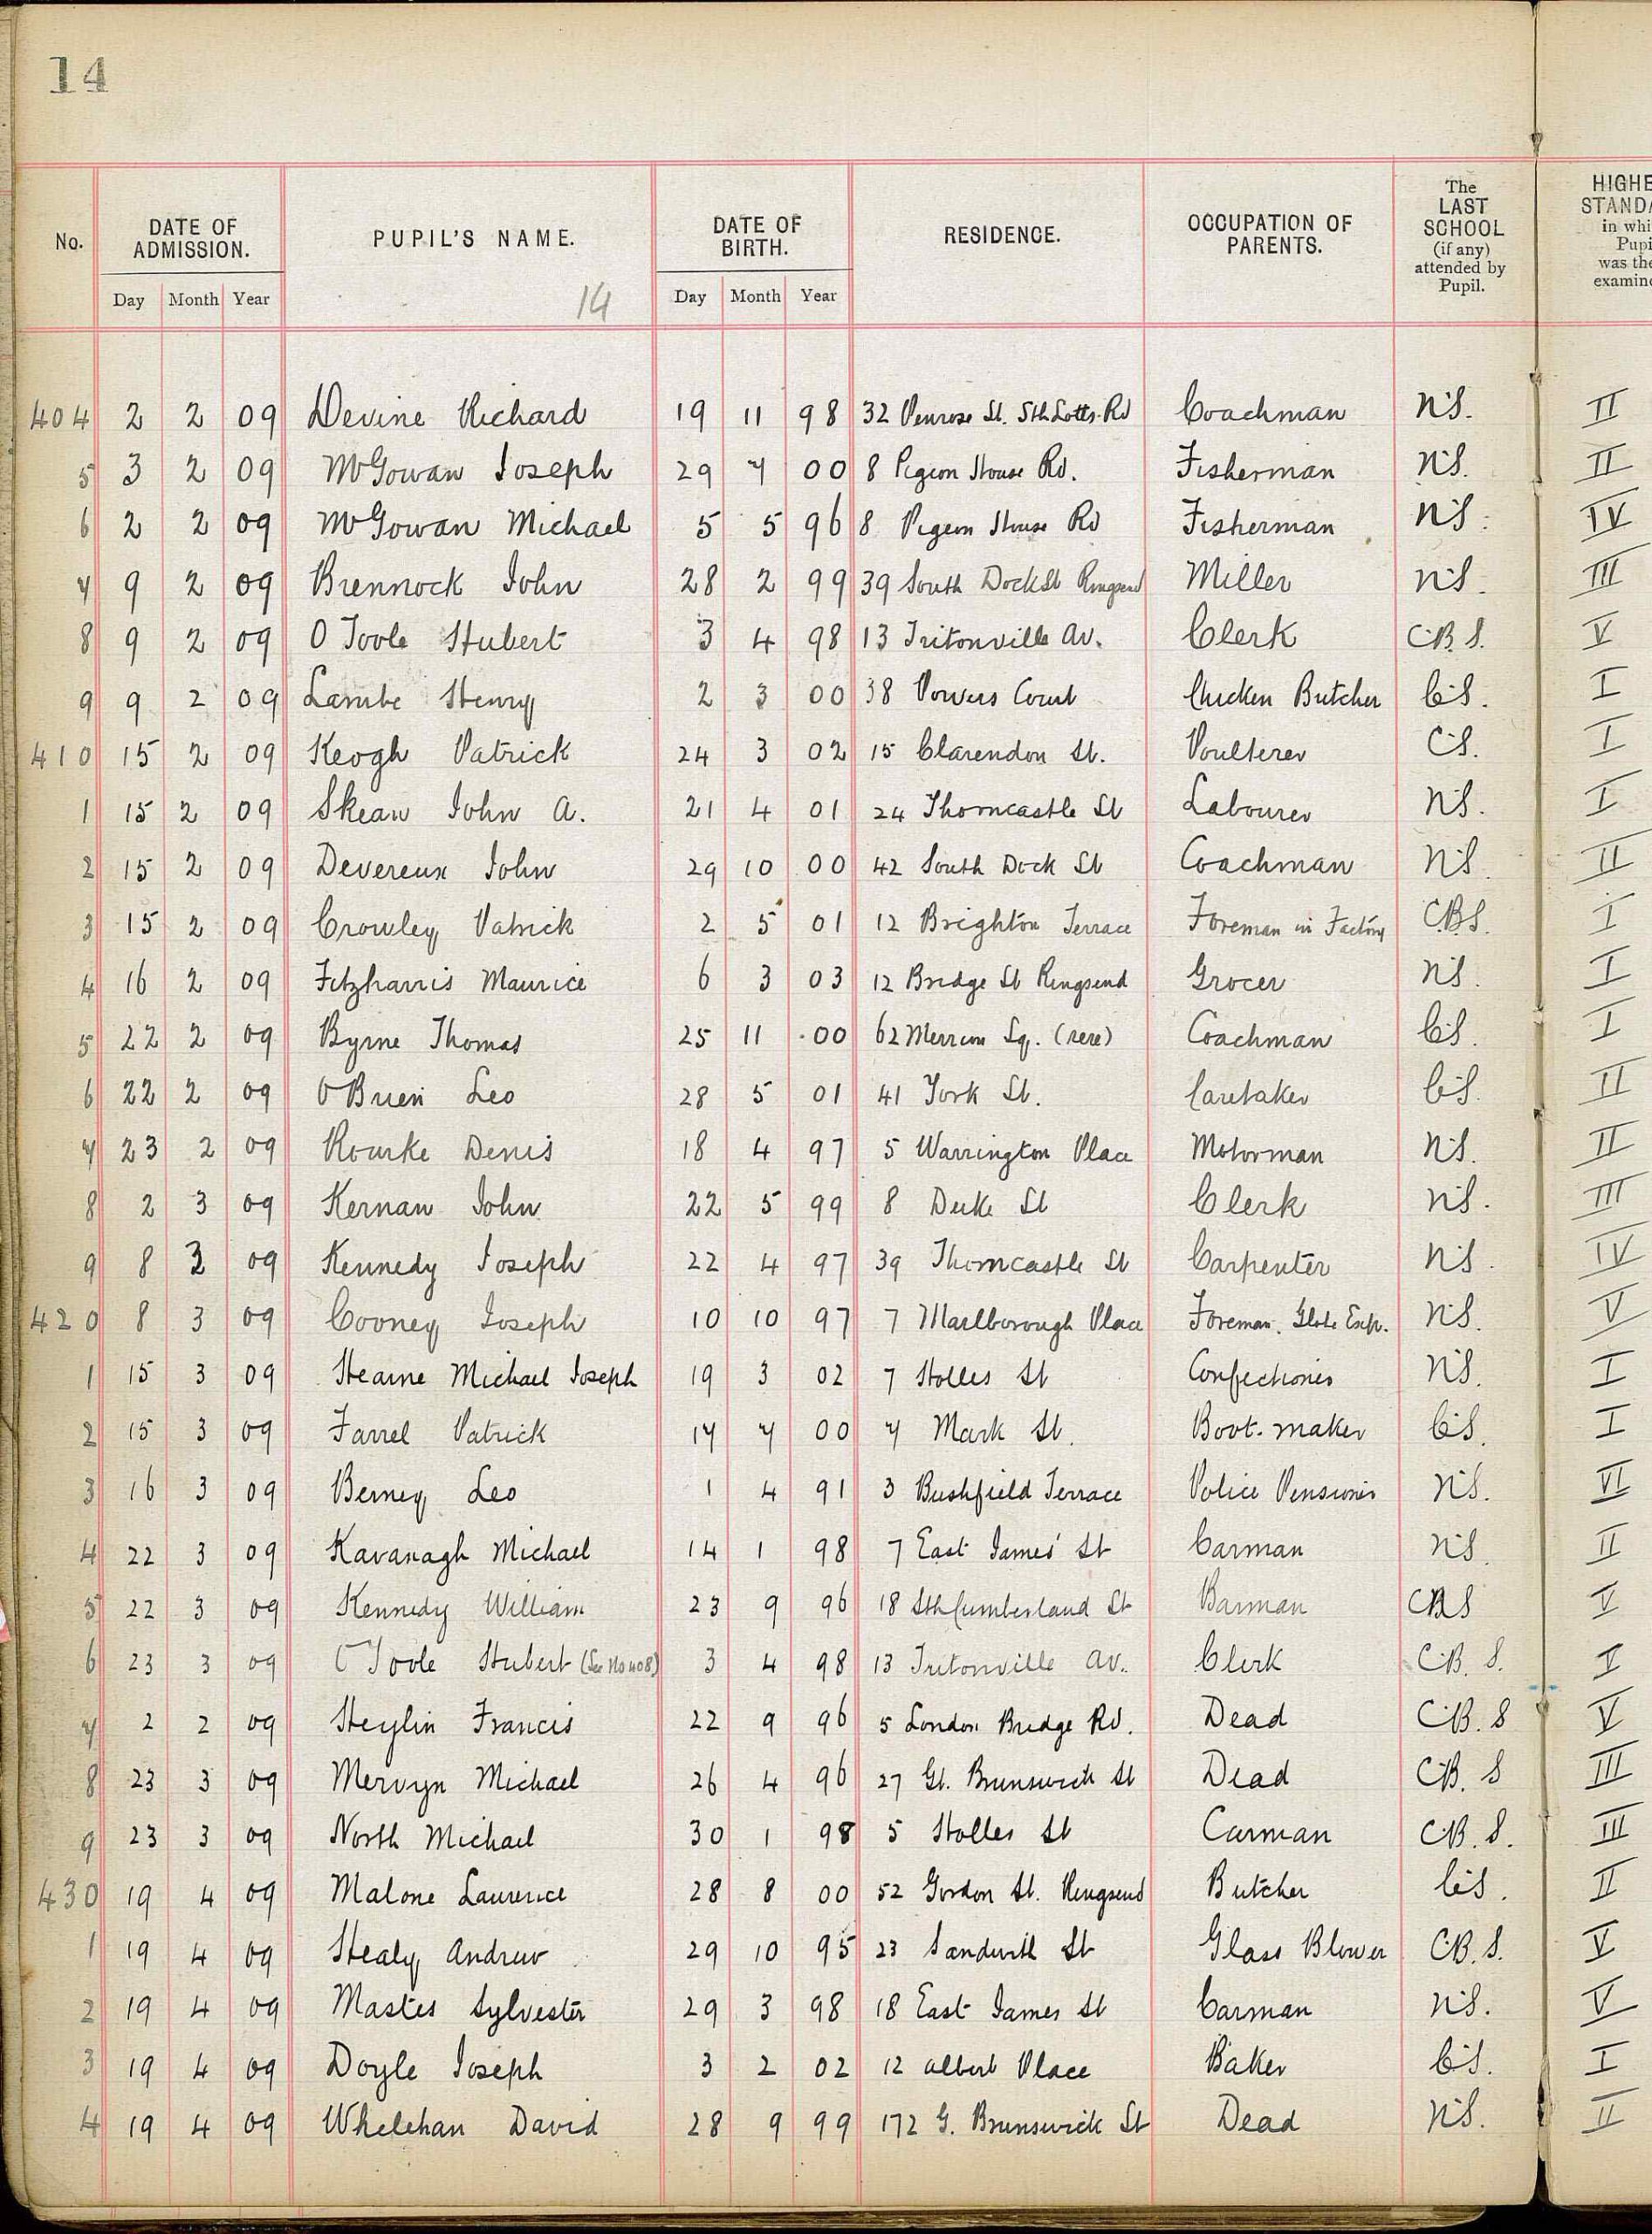 14
No. DATE OF ADMISSION. PUPIL'S NAME. DATE OF BIRTH. RESIDENCE. OCCUPATION OF PARENTS. The LAST SCHOOL (if any) attended by Pupil. HIGHE STANDA in whi Pupi was the examine
Day Month Year 14 Day Month Year
404 2 2 09 Devine Richard 19 11 98 32 Penrose St. Sth Lotts Rd Coachman N.S. II
5 3 2 09 McGowan Joseph 29 7 00 8 Pigeon House Rd. Fisherman N.S. II
6 2 2 09 McGowan Michael 5 5 96 8 Pigeon House Rd Fisherman N.S. IV
7 9 2 09 Brennock John 28 2 99 39 South Dock St Ringsend Miller N.S. III
8 9 2 09 O Toole Hubert 3 4 98 13 Tritonville Av. Clerk C.B.S. V
9 9 2 09 Lambe Henry 2 3 00 38 Powers Court Chicken Butcher C.S. I
410 15 2 09 Keogh Patrick 24 3 02 15 Clarendon St. Poulterer C.S. I
1 15 2 09 Skean John A. 21 4 01 24 Thorncastle St Labourer N.S. I
2 15 2 09 Devereux John 29 10 00 42 South Dock St Coachman N.S. II
3 15 2 09 Crowley Patrick 2 5 01 12 Brighton Terrace Foreman in Factory C.B.S. I
4 16 2 09 Fitzharris Maurice 6 3 03 12 Bridge St Ringsend Grocer N.S. I
5 22 2 09 Byrne Thomas 25 11 00 62 Merrion Sq. (rere) Coachman C.S. I
6 22 2 09 O'Brien Leo 28 5 01 41 York St. Caretaker C.S. II
7 23 2 09 Rourke Denis 18 4 97 5 Warrington Place Motorman N.S. II
8 2 3 09 Kernan John 22 5 99 8 Duke St Clerk N.S. III
9 8 3 09 Kennedy Joseph 22 4 97 39 Thorncastle St Carpenter N.S. IV
420 8 3 09 Cooney Joseph 10 10 97 7 Marlborough Place Foreman. Globe N.S. V
1 15 3 09 Hearne Michael Joseph 19 3 02 7 Holles St Confectioner N.S. I
2 15 3 09 Farrel Patrick 17 7 00 7 Mark St. Boot-maker C.S. I
3 16 3 09 Berney Leo 1 4 91 3 Bushfield Terrace Police Pensioner N.S. VI
4 22 3 09 Kavanagh Michael 14 1 98 7 East James' St Carman N.S. II
5 22 3 09 Kennedy William 23 9 96 18 Sth Cumberland St Barman CBS V
6 23 3 09 O Toole Hubert (See No 408) 3 4 98 13 Tritonville Av. Clerk C.B.S. I
7 2 2 09 Heylin Francis 22 9 96 5 London Bridge Rd. Dead C.B.S V
8 23 3 09 Mervyn Michael 26 4 96 27 Gt. Brunswick St Dead C.B.S III
9 23 3 09 North Michael 30 1 98 5 Holles St Carman C.B.S. III
430 19 4 09 Malone Laurence 28 8 00 52 Gordon St. Ringsend Butcher C.S. II
1 19 4 09 Healy Andrew 29 10 95 23 Sandwith St Glass Blower C.B.S. V
2 19 4 09 Mastes Sylvester 29 3 98 18 East James St Carman N.S. V
3 19 4 09 Doyle Joseph 3 2 02 12 Albert Place Baker C.S. I
4 19 4 09 Whelehan David 28 9 99 172 G. Brunswick St Dead N.S. II